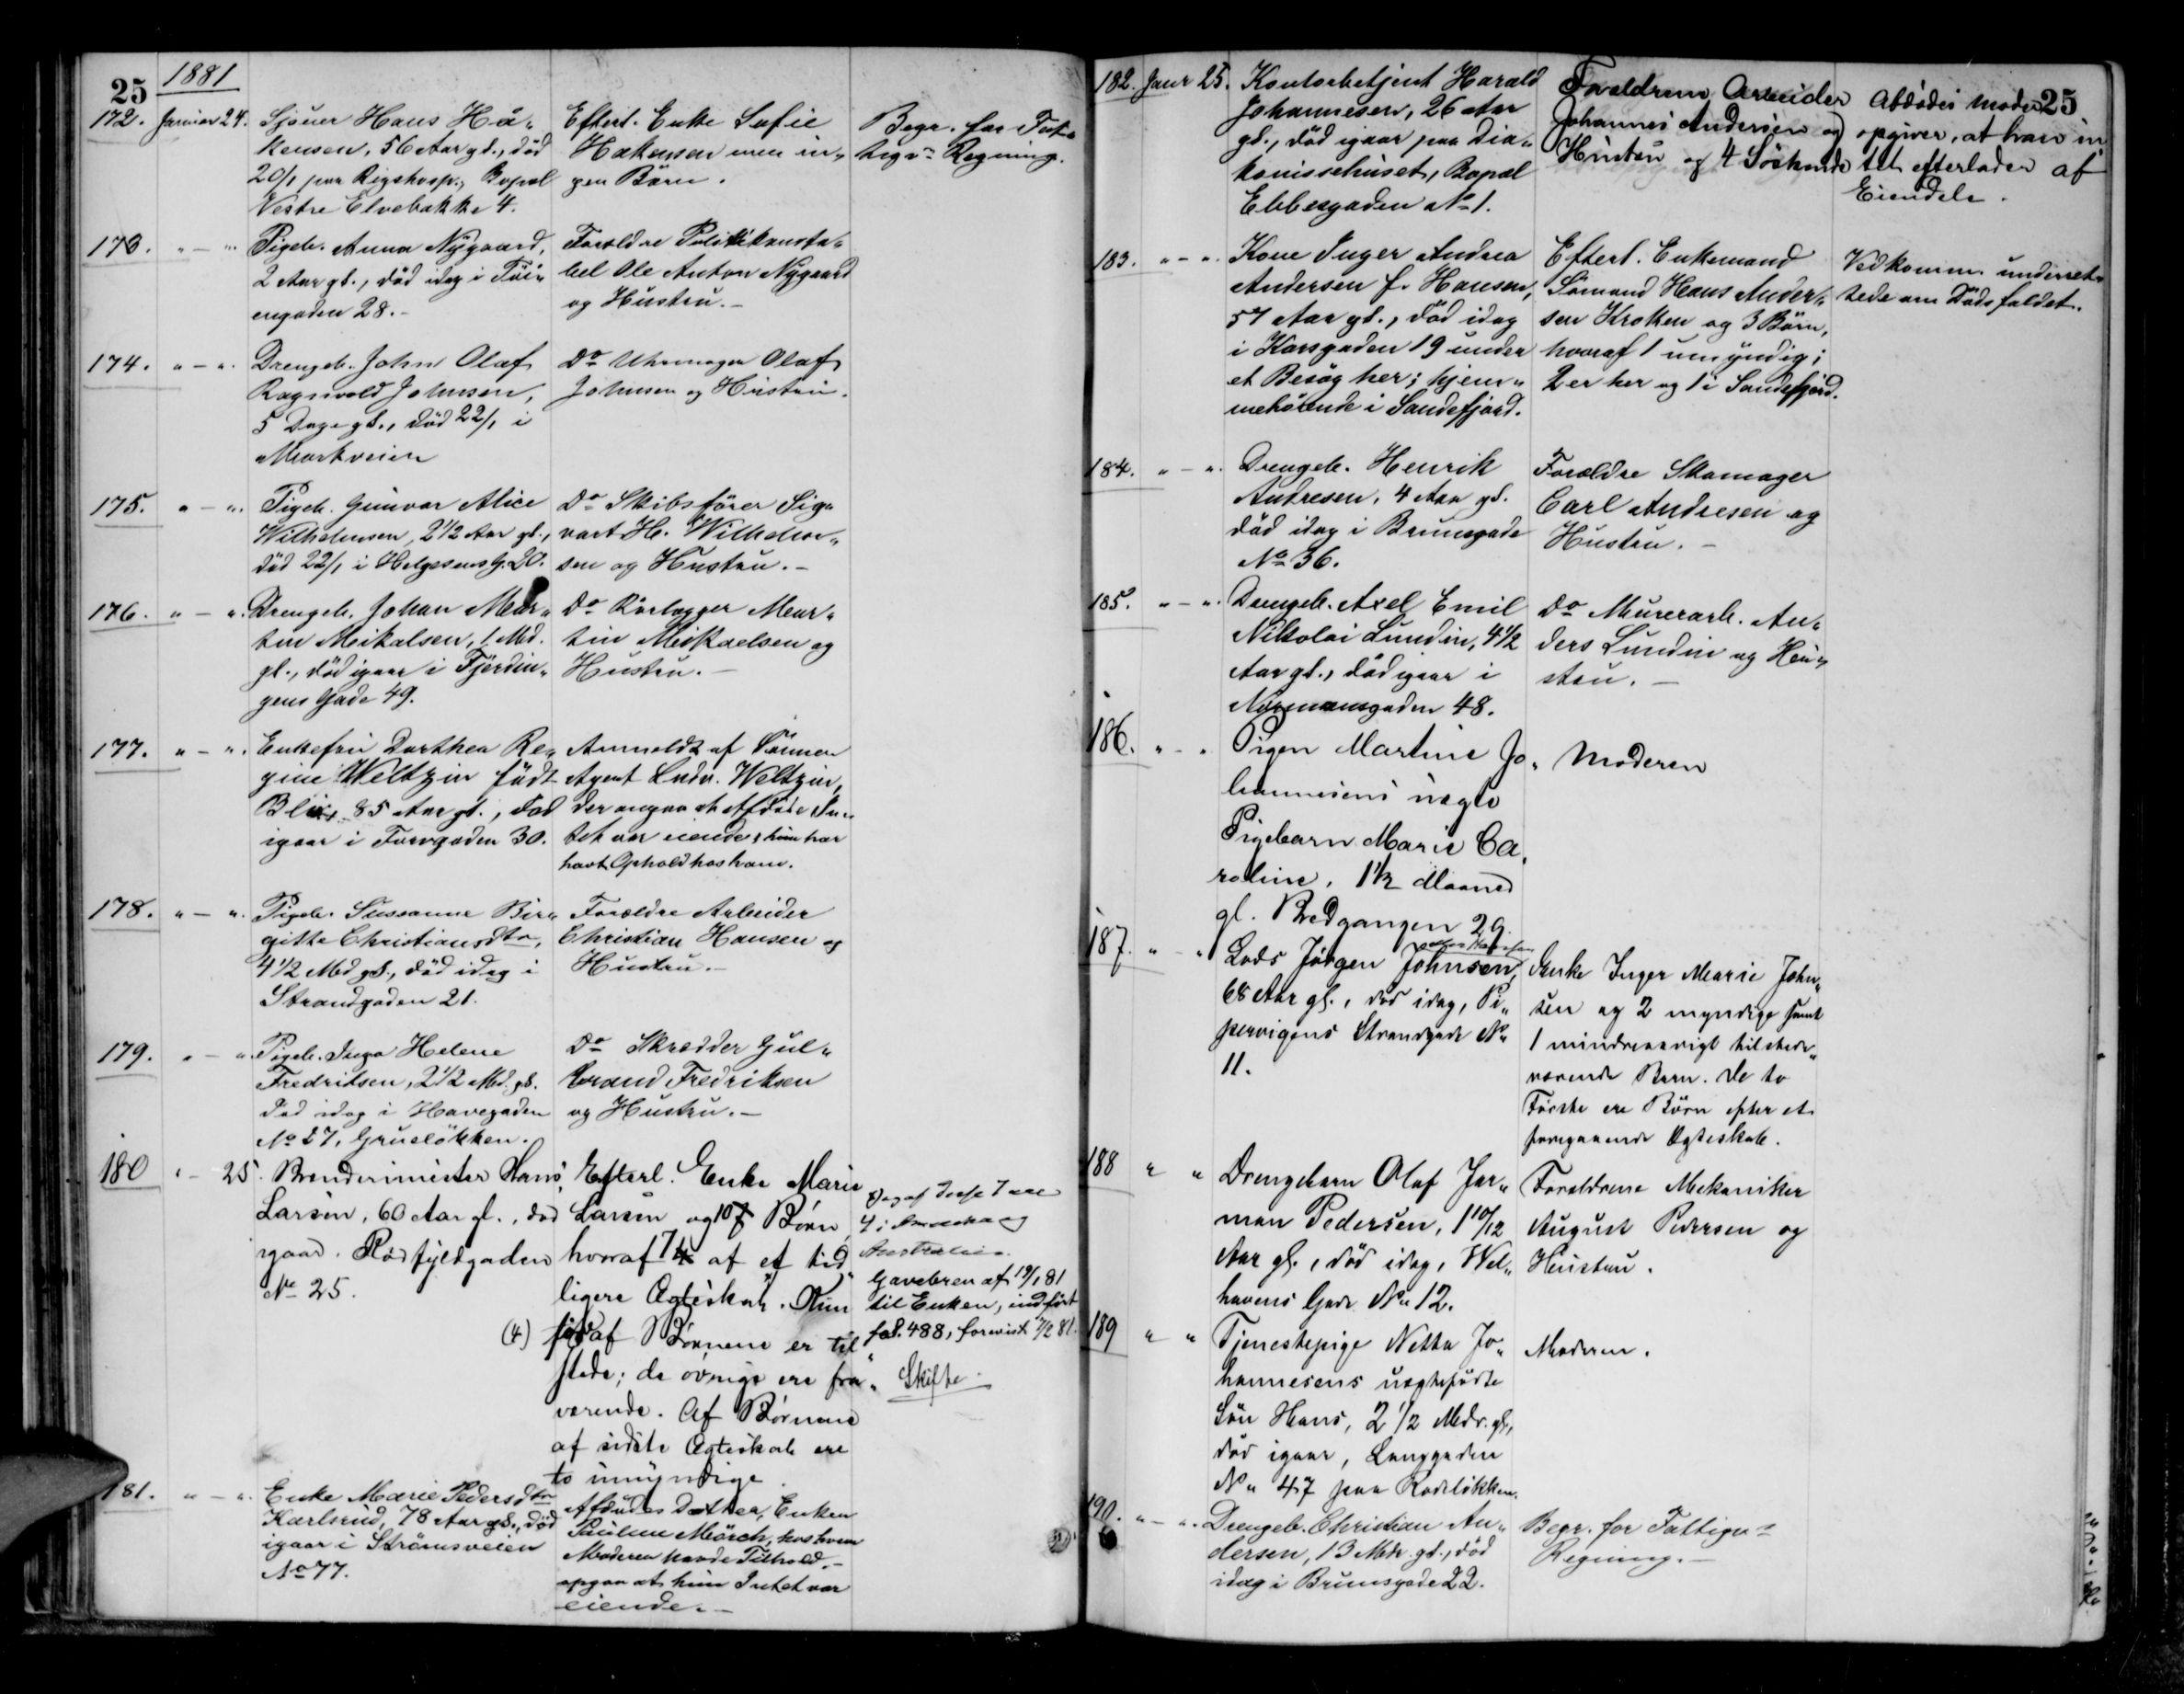 25
1881
172. Januar 24. Sjouer Hans Hå-
kensen, 56 Aar gl., död
20/1 paa Rigshosp., Bopæl
Vestre Elvebakke 4.
Efterl. Enke Sofie
Hakensen men in-
gen Börn.
Begr. for Fat-
tigv. Regning.
173. " — " Pigeb. Anna Nygaard,
2 Aar gl., död idag i Töi-
engaden 28. —
Forældre Politikonsta-
bel Ole Anton Nygaard
og Hustru. —
174. " — " Drengeb. John Olaf
Ragnvald Johnsen,
5 Dage gl., död 22/1 i
Markveien
Do Uhrmager Olaf
Johnsen og Hustru.
175. " — " Pigeb. Gunvor Alice
Wilhelmsen, 2 1/2 Aar gl.,
död 22/1 i Helgesens G. 20.
Do Skibsförer Sig-
vart H. Wilhelm-
sen og Hustru. —
176. " — " Drengeb. Johan Mar-
tin Meikalsen, 1 Md.
gl., död igaar i Fjerdin-
gens Gade 49.
Do Rörlægger Mar-
tin Meikaelsen og
Hustru. —
177. " — " Enkefru Dorthea Re-
gine Weltzin födt
Blix, 85 Aar gl., död
igaar i Torvgaden 30.
Anmeldt af Sönnen
Agent Ludv. Weltzin,
der opgav at Afdöde In-
tet var eiende, hun har
havt Ophold hos ham.
178. " — " Pigeb. Sussanne Bir-
gitte Christiansdtr,
4 1/2 Md gl., död idag i
Strandgaden 21.
Forældre Arbeider
Christian Hansen og
Hustru. —
179. " — " Pigeb. Inga Helene
Fredriksen, 2 1/2 Md. gl.
död idag i Havegaden
No 27, Grueløkken.
Do Skrædder Gul-
brand Fredriksen
og Hustru. —
180 " — 25. Branderimester Hans
Larsen, 60 Aar gl., död
igaar. Rødfyldgaden
No 25.
Efterl. Enke Marie
Larsen og 10 Börn,
hvoraf 7 af et tid-
ligere Ægteskab. Kun
(4) af Børnene er til
stede; de øvrige ere fra-
værende. Af Børnene
af sidste Ægteskab ere
to umyndige.
af disse 7 ere
4 i Amerika og
Australien.
Gavebrev af 19/1 81
til Enken, indfört
fol. 488, forevist 1/2 81.
Skifte
181. " — " Enke Marie Pedersdtr
Karlsrud, 78 Aar gl., död
igaar i Strömsveien
No 77.
Afdödes Datter, Enken
Pauline Mörch, hos hvem
Moderen havde Tilhold, —
opgav at hun Intet var
eiende. —
25
182. Janr 25. Kontorbetjent Harald
Johannesen, 26 Aar
gl., död igaar paa Dia-
konissehuset, Bopæl
Ebbesgaden No 1.
Forældrene Arbeider
Johannes Andersen og
Hustru og 4 Söskende
Afdödes Moder
opgiver, at han in
tet efterlader af
Eiendele.
183. " — " Kone Inger Andrea
Andersen f. Hansen,
57 Aar gl., död idag
i Korsgaden 19 under
et Besög her; hjem-
mehörende i Sandefjord.
Efterl. Enkemand
Sömand Hans Ander-
sen Kroken og 3 Börn,
hvoraf 1 umyndig;
2 er her og 1 i Sandefjord.
Vedkomm. underret-
tede om Dödsfaldet.
184. " — " Drengeb. Henrik
Andresen, 4 Aar gl.
död idag i Brunsgade
No 36.
Forældre Skomager
Carl Andresen og
Hustru. —
185. " — " Drengeb. Axel Emil
Nikolai Lundin, 4 1/2
Aar gl., död igaar i
Normansgaden 48.
Do Murerarb. An-
ders Lundin og Hu-
stru. —
186. " — " Pigen Martine Jo-
hannesens uægte
Pigebarn Marie Ca-
roline, 1 1/2 Maaned
gl. Bredgangen 29.
Moderen
187. " — " Lods Jörgen Johnsen,
68 Aar gl., död idag, Pi-
pervigens Strandgade No
11.
Enke Inger Marie John-
sen og 2 myndige samt
1 mindreaarigt tilstede-
værende Barn. De to
Förste ere Börn efter et
foregaaende Ægteskab.
188 " " Drengebarn Olaf Jar-
man Pedersen, 1 10/12
Aar gl., död idag, Wel-
havens Gade No 12.
Forældrene Mekaniker
August Pedersen og
Hustru.
189 " " Tjenestepige Netta Jo-
hannesens uægtefödte
Sön Hans, 2 1/2 Mdr. gl,
död igaar, Langgaden
No 47 paa Rodeløkken.
Moderen.
190. " — " Drengeb. Christian An-
dersen, 13 Mdr. gl., död
idag i Brunsgade 22.
Begr. for Fattigv.
Regning. —